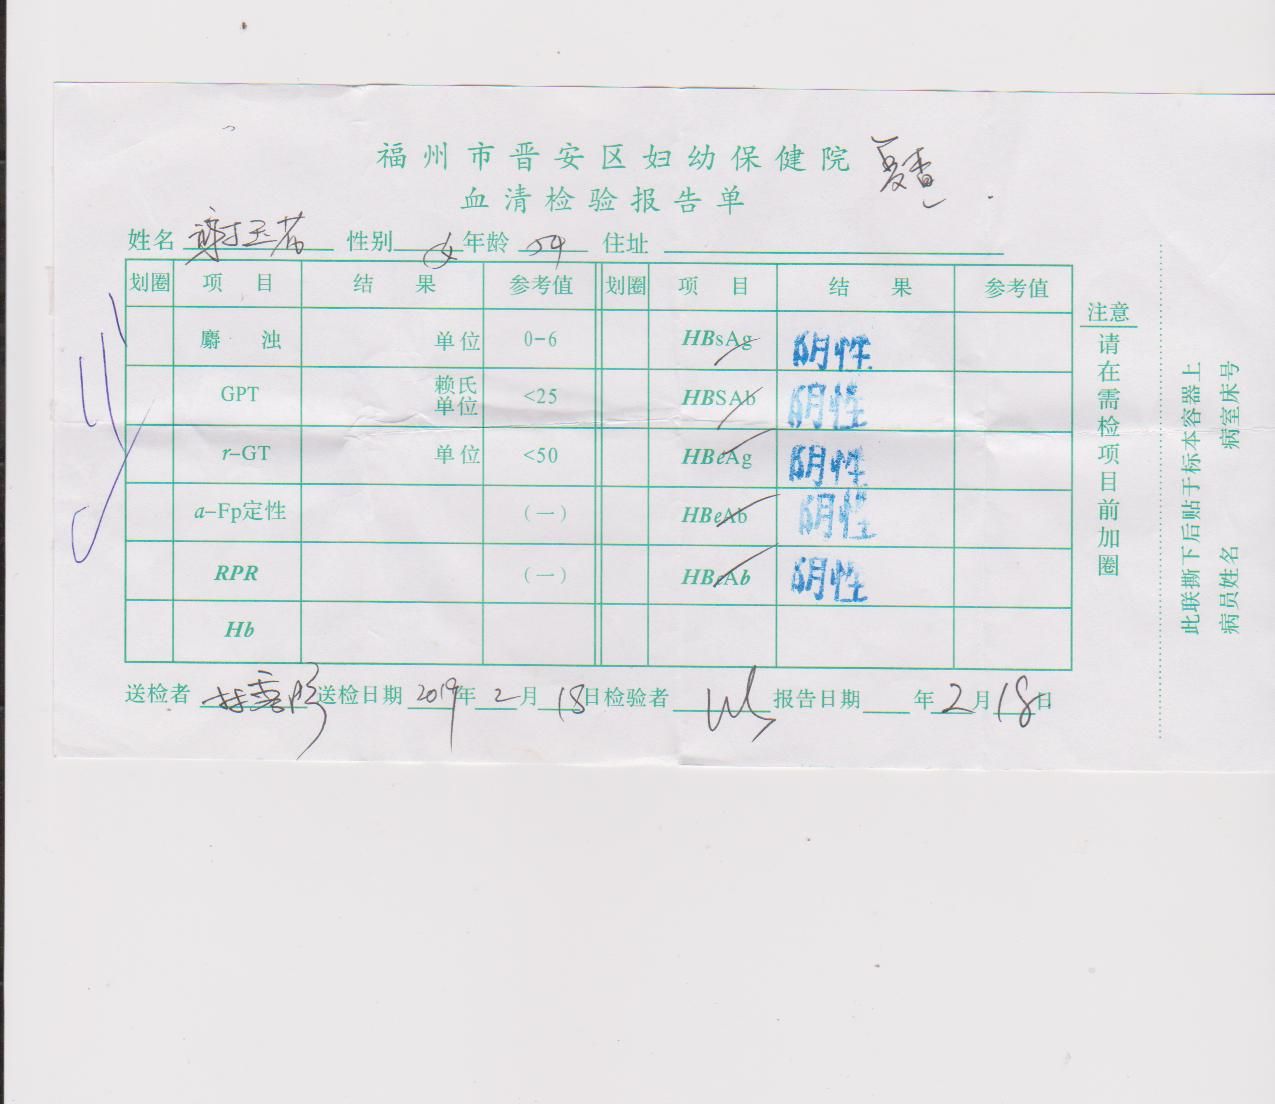 福州市晋安区妇幼保健院 复查
血清检验报告单
姓名 谢玉 性别 女 年龄 54 住址
划圈 项目 结果 参考值 划圈 项目 结果 参考值
麝浊 单位 0-6 HBsAg 阴性
GPT 赖氏单位 <25 HBSAb 阴性
r-GT 单位 <50 HBeAg 阴性
a-Fp定性 (一) HBeAb 阴性
RPR (一) HBcAb 阴性
Hb
送检者 送检日期 2019年2月18日 检验者 报告日期 年2月18日
注意
请在需检项目前加圈
此联撕下后贴于标本容器上
病员姓名 病室床号